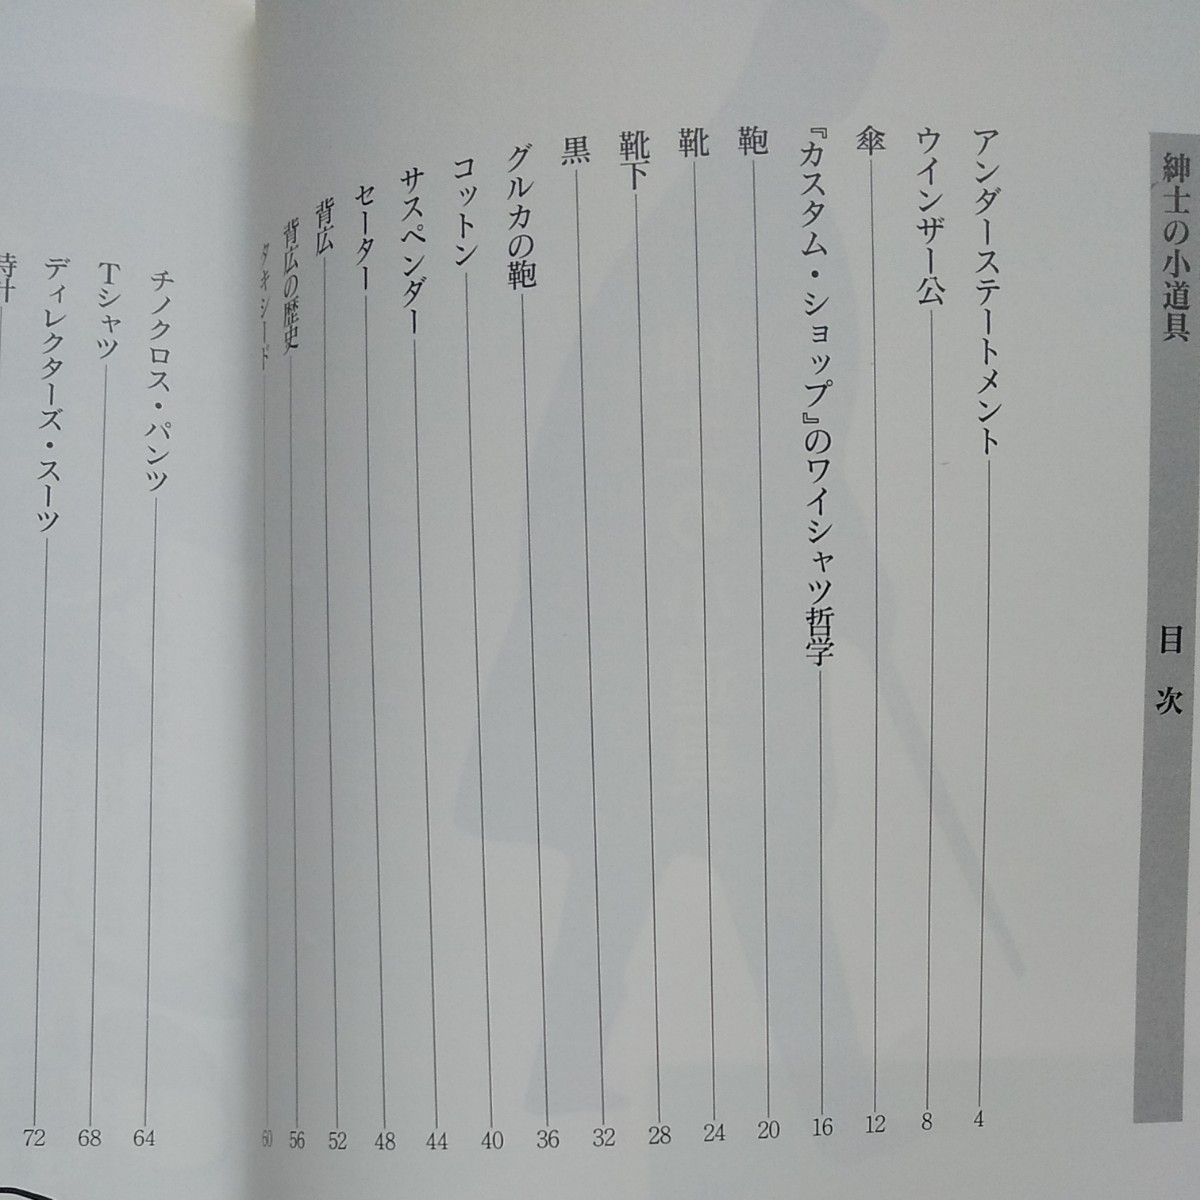 紳士の小道具 目次
アンダーステートメント 4
ウインザー公 8
傘 12
『カスタム・ショップ』のワイシャツ哲学 16
鞄 20
靴 24
靴下 28
黒 32
グルカの鞄 36
コットン 40
サスペンダー 44
セーター 48
背広 52
背広の歴史 56
タキシード 60
チノクロス・パンツ 64
Tシャツ 68
ディレクターズ・スーツ 72
時計